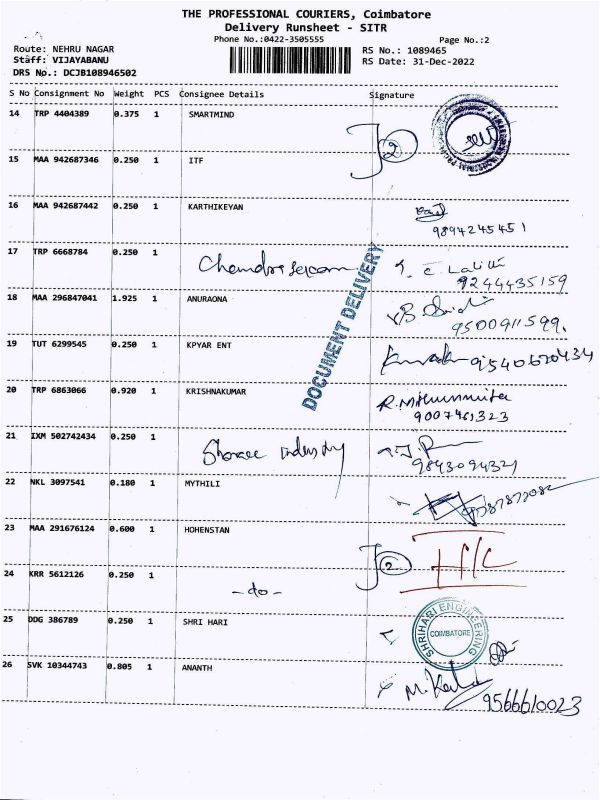 THE PROFESSIONAL COURIERS, Coimbatore
Delivery Runsheet - SITR
Phone No.:0422-3505555
Page No.:2
Route: NEHRU NAGAR
RS No.: 1089465
Staff: VIJAYABANU
RS Date: 31-Dec-2022
DRS No.: DCJB108946502
S No Consignment No Weight PCS Consignee Details Signature
14 TRP 4404389 0.375 1 SMARTMIND
2
15 MAA 942687346 0.250 1 ITF
16 MAA 942687442 0.250 1 KARTHIKEYAN
9894245451
17 TRP 6668784 0.250 1 Chandrasekaran
T. C. Lalith
9244435159
18 MAA 296847041 1.925 1 ANURAONA
9500911599.
DOCUMENT DELIVERY
19 TUT 6299545 0.250 1 KPYAR ENT
9540620434
20 TRP 6863066 0.920 1 KRISHNAKUMAR
9007461323
21 IXM 502742434 0.250 1 Sharee industry
9843094321
22 NKL 3097541 0.180 1 MYTHILI
23 MAA 291676124 0.600 1 HOHENSTAN
2
H/C
24 KRR 5612126 0.250 1 -do-
25 DDG 386789 0.250 1 SHRI HARI
SHRIHARI ENGINEERING
COIMBATORE
26 SVK 10344743 0.805 1 ANANTH
9566610023